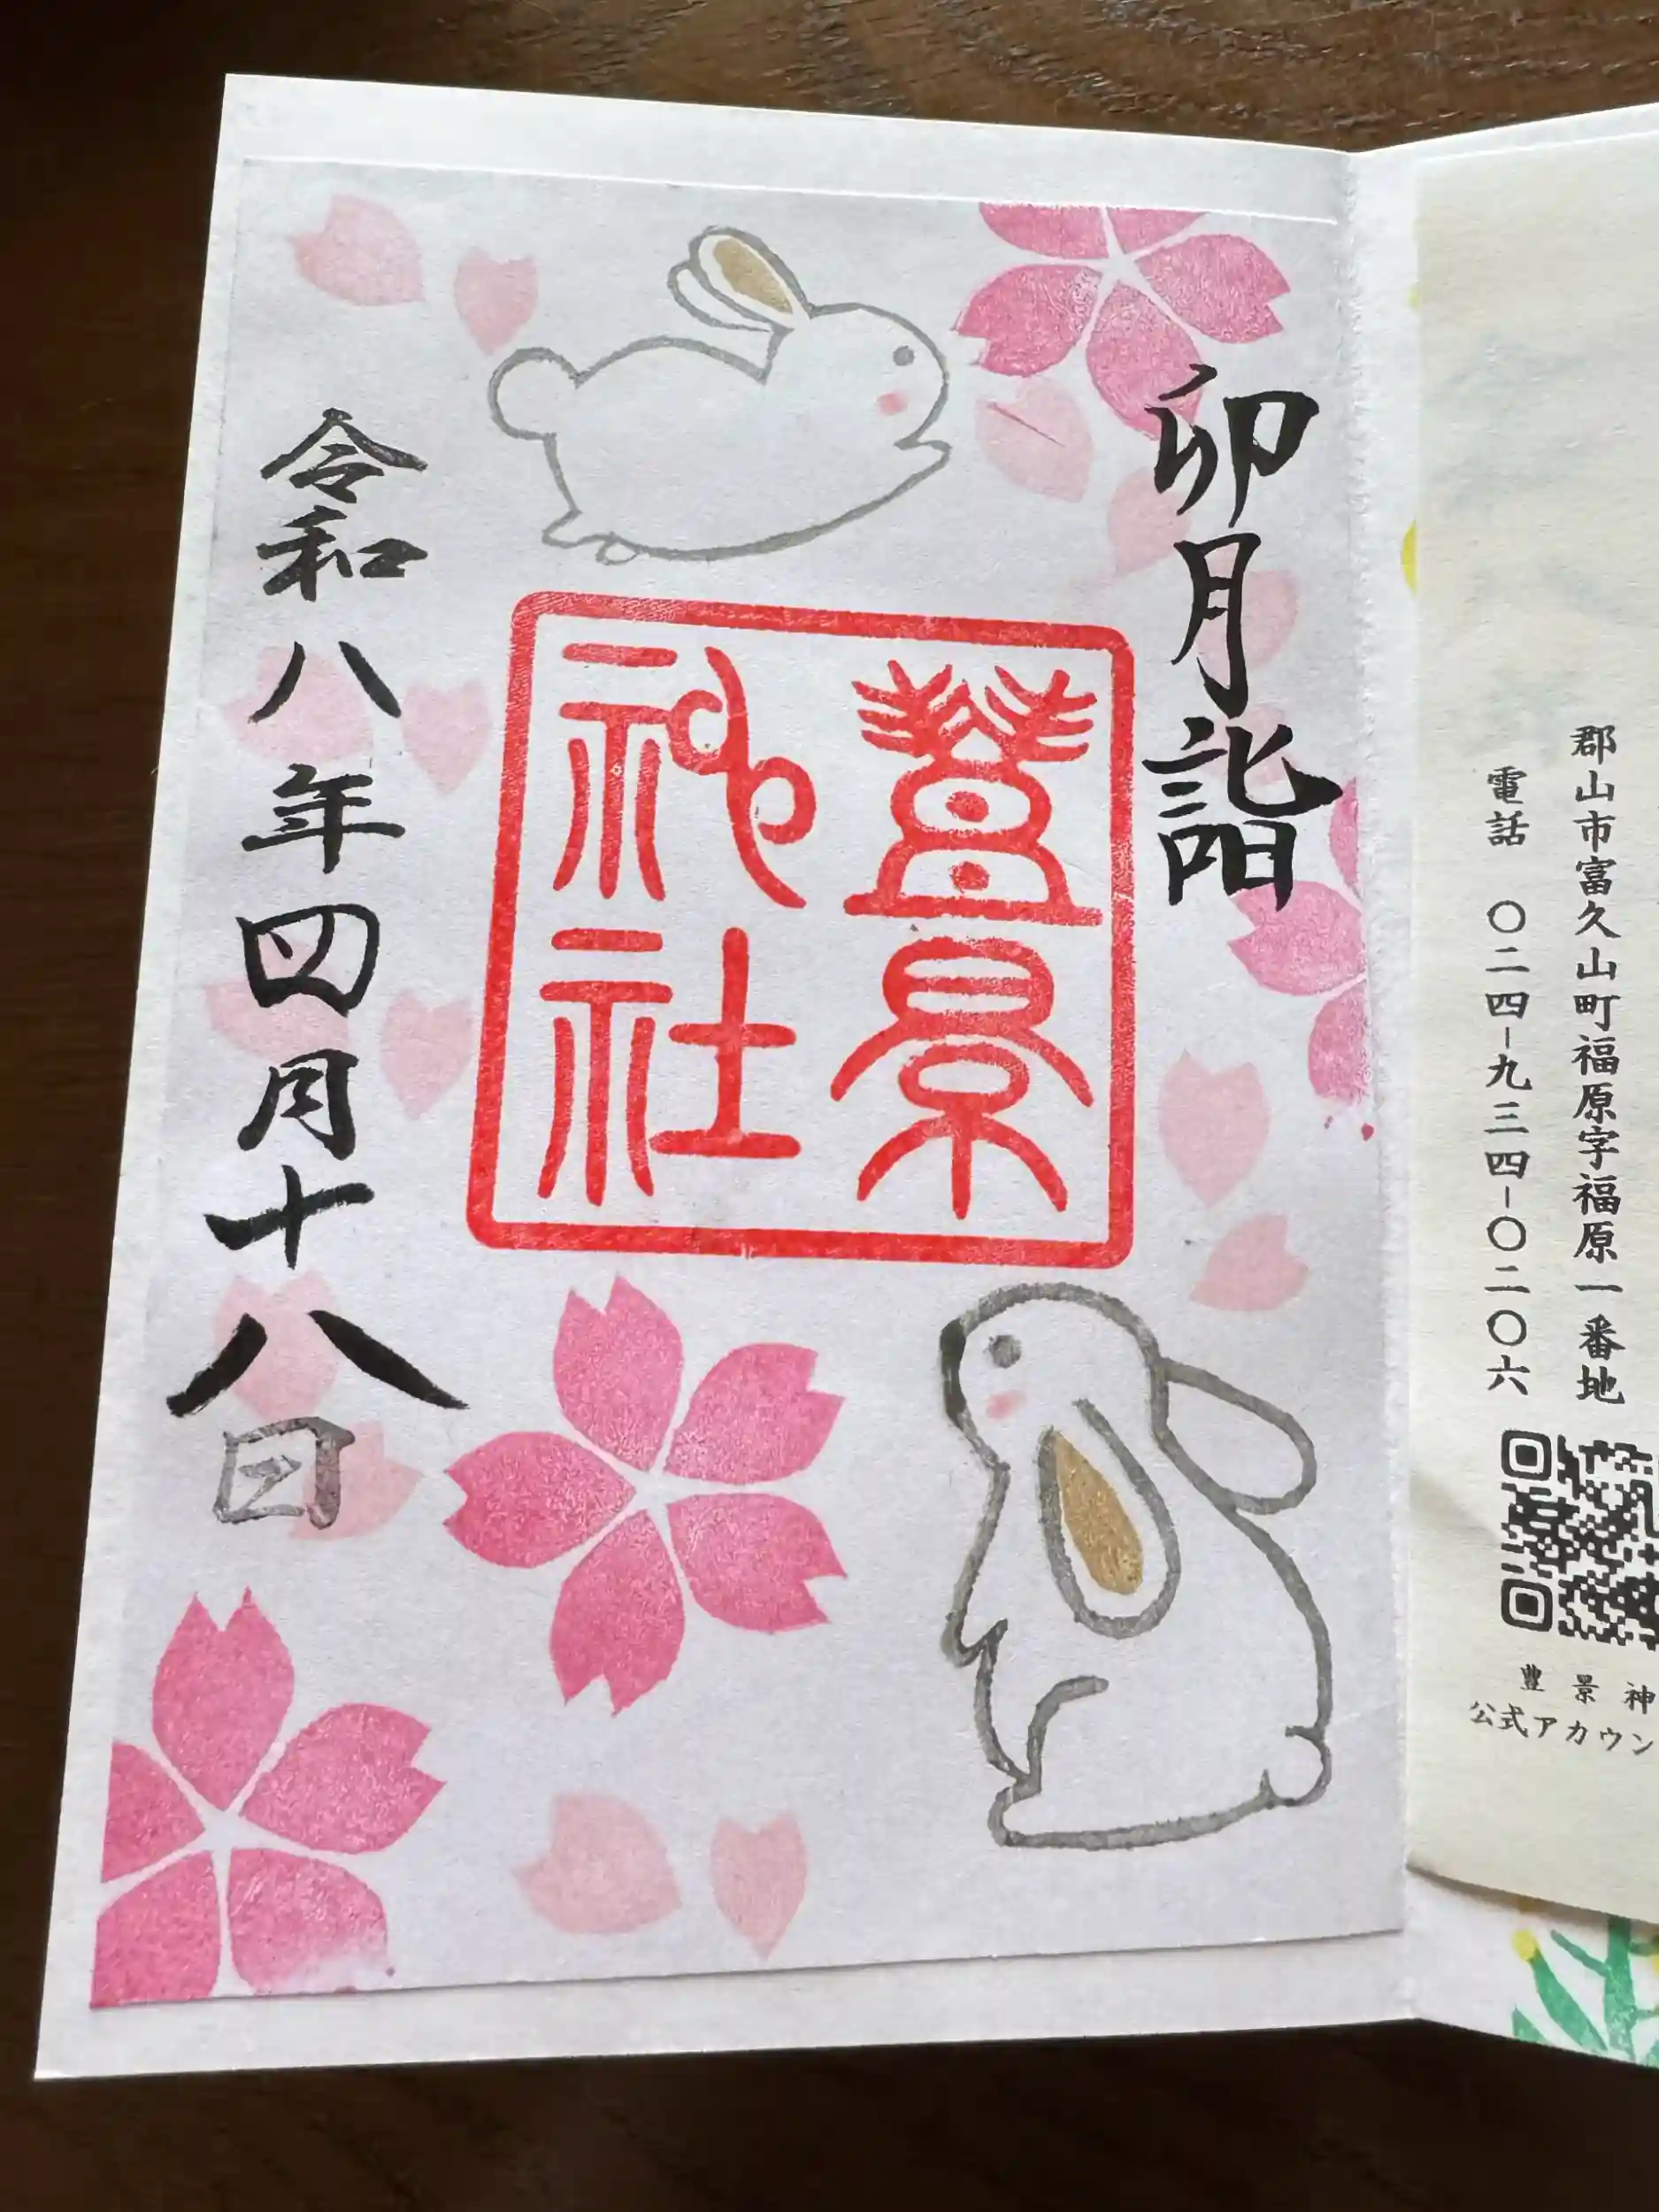 郡山市富久山町福原字福原一番地
電話 〇二四-九三四-〇二〇六
豊景神
公式アカウン
卯月詣
豊景
神社
令和八年四月十八日